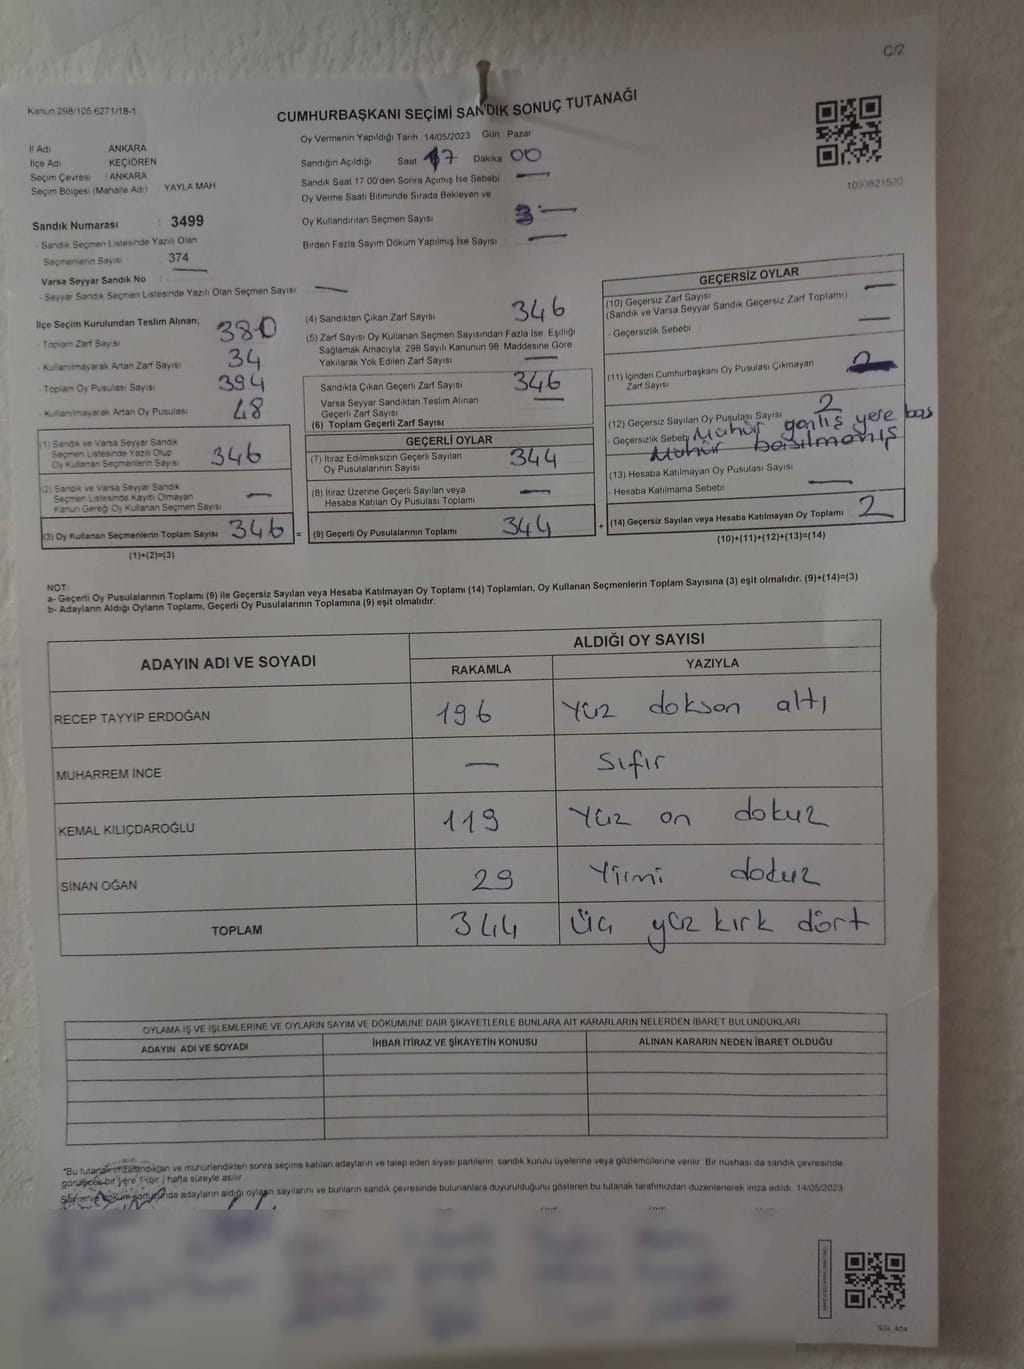 C/2
Kanun 298/105 6271/18-1
CUMHURBAŞKANI SEÇİMİ SANDIK SONUÇ TUTANAĞI
Oy Vermenin Yapıldığı Tarih 14/05/2023 Gün Pazar
İl Adı ANKARA
İlçe Adı : KEÇİÖREN
Seçim Çevresi : ANKARA
Seçim Bölgesi (Mahalle Adı) : YAYLA MAH
Sandığın Açıldığı Saat 17 Dakika 00
Sandık Saat 17 00'den Sonra Açımış İse Sebebi —
Oy Verme Saati Bitiminde Sırada Bekleyen ve
Oy Kullandırılan Seçmen Sayısı —
Birden Fazla Sayım Döküm Yapılmış İse Sayısı —
1093821520
Sandık Numarası : 3499
- Sandık Seçmen Listesinde Yazılı Olan
Seçmenlerin Sayısı : 374
Varsa Seyyar Sandık No —
- Seyyar Sandık Seçmen Listesinde Yazılı Olan Seçmen Sayısı —
İlçe Seçim Kurulundan Teslim Alınan;
- Toplam Zarf Sayısı 380
- Kullanılmayarak Artan Zarf Sayısı 34
- Toplam Oy Pusulası Sayısı 394
- Kullanılmayarak Artan Oy Pusulası 48
(1) Sandık ve Varsa Seyyar Sandık
Seçmen Listesinde Yazılı Olup
Oy Kullanan Seçmenlerin Sayısı 346
(2) Sandık ve Varsa Seyyar Sandık
Seçmen Listesinde Kayıtlı Olmayan
Kanun Gereği Oy Kullanan Seçmen Sayısı —
(3) Oy Kullanan Seçmenlerin Toplam Sayısı 346 =
(1)+(2)=(3)
(4) Sandıktan Çıkan Zarf Sayısı 346
(5) Zarf Sayısı Oy Kullanan Seçmen Sayısından Fazla İse; Eşitliği
Sağlamak Amacıyla; 298 Sayılı Kanunun 98. Maddesine Göre
Yakılarak Yok Edilen Zarf Sayısı —
Sandıkta Çıkan Geçerli Zarf Sayısı 346
Varsa Seyyar Sandıktan Teslim Alınan
Geçerli Zarf Sayısı —
(6) Toplam Geçerli Zarf Sayısı
GEÇERLİ OYLAR
(7) İtiraz Edilmeksizin Geçerli Sayılan
Oy Pusulalarının Sayısı 344
(8) İtiraz Üzerine Geçerli Sayılan veya
Hesaba Katılan Oy Pusulası Toplamı —
(9) Geçerli Oy Pusulalarının Toplamı 344 +
GEÇERSİZ OYLAR
(10) Geçersiz Zarf Sayısı —
(Sandık ve Varsa Seyyar Sandık Geçersiz Zarf Toplamı)
- Geçersizlik Sebebi —
(11) İçinden Cumhurbaşkanı Oy Pusulası Çıkmayan
Zarf Sayısı —
(12) Geçersiz Sayılan Oy Pusulası Sayısı 2
- Geçersizlik Sebebi Mühür yanlış yere bas
Mühür basılmamış
(13) Hesaba Katılmayan Oy Pusulası Sayısı
- Hesaba Katılmama Sebebi —
(14) Geçersiz Sayılan veya Hesaba Katılmayan Oy Toplamı 2
(10)+(11)+(12)+(13)=(14)
NOT:
a- Geçerli Oy Pusulalarının Toplamı (9) ile Geçersiz Sayılan veya Hesaba Katılmayan Oy Toplamı (14) Toplamları, Oy Kullanan Seçmenlerin Toplam Sayısına (3) eşit olmalıdır. (9)+(14)=(3)
b- Adayların Aldığı Oyların Toplamı, Geçerli Oy Pusulalarının Toplamına (9) eşit olmalıdır.
ADAYIN ADI VE SOYADI ALDIĞI OY SAYISI
RAKAMLA YAZIYLA
RECEP TAYYIP ERDOĞAN 196 Yüz doksan altı
MUHARREM İNCE — Sıfır
KEMAL KILIÇDAROĞLU 119 Yüz on dokuz
SİNAN OĞAN 29 Yirmi dokuz
TOPLAM 344 Üç yüz kırk dört
OYLAMA İŞ VE İŞLEMLERİNE VE OYLARIN SAYIM VE DÖKÜMÜNE DAİR ŞİKAYETLERLE BUNLARA AİT KARARLARIN NELERDEN İBARET BULUNDUKLARI
ADAYIN ADI VE SOYADI İHBAR İTİRAZ VE ŞİKAYETİN KONUSU ALINAN KARARIN NEDEN İBARET OLDUĞU
*Bu tutanak imzalandıktan ve mühürlendikten sonra seçime katılan adayların ve talep eden siyasi partilerin sandık kurulu üyelerine veya gözlemcilerine verilir. Bir nüshası da sandık çevresinde
görülecek bir yere 1 (bir) hafta süreyle asılır
Sayım ve döküm sonucunda adayların aldığı oyların sayılarını ve bunların sandık çevresinde bulunanlara duyurulduğunu gösteren bu tutanak tarafımızdan düzenlenerek imza edildi. 14/05/2023